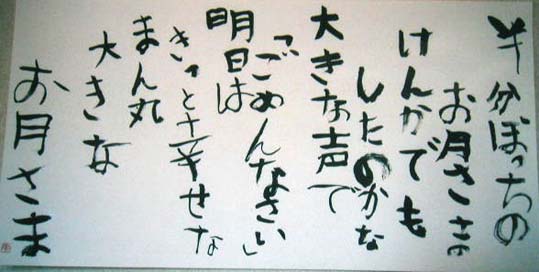 半分ぼっちの
お月さまの
けんかでも
したのかな
大きな声で
「ごめんなさい」
明日は
きっと幸せな
まん丸
大きな
お月さま